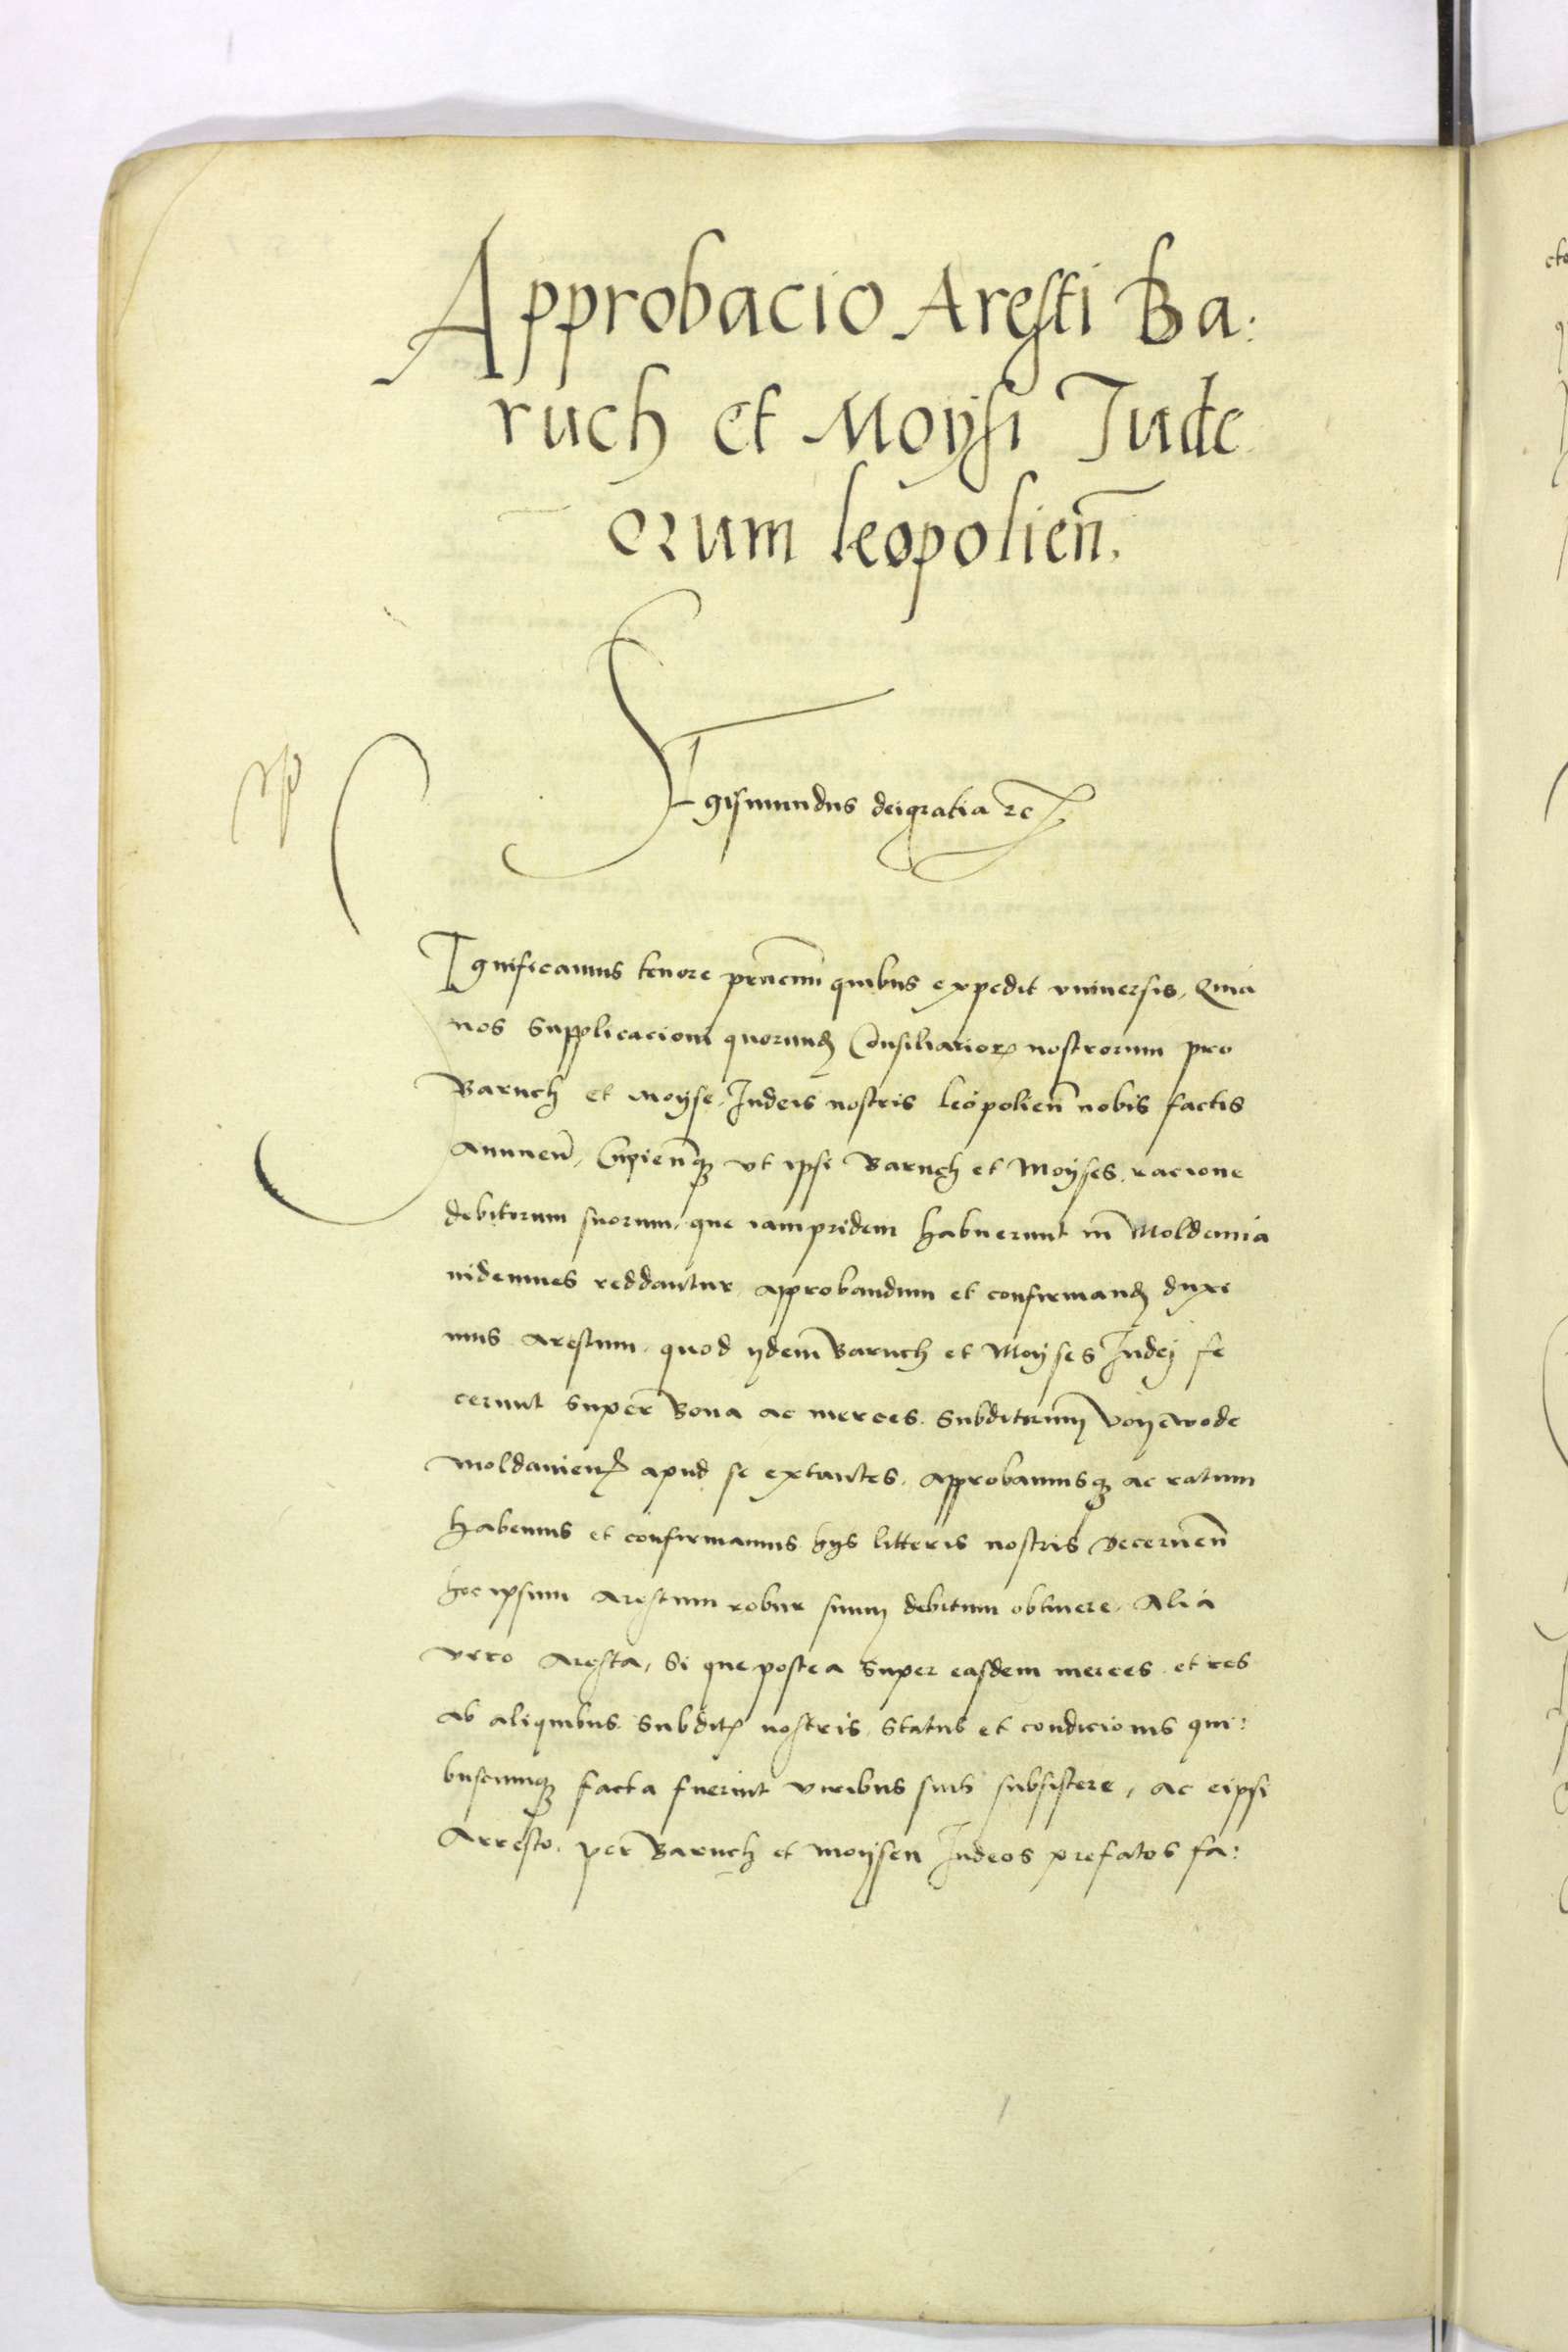 Approbacio Aresti Ba:
ruch et Moÿsi Jude
orum leopolien̄.
Sigismundus dei gratia ꝛc
Significamus tenore p̄ncium quibus expedit vniuersis, Quia
nos Supplicacioni quorund̨ Consiliarioꝝ nostrorum pro
Baruch et Moÿse Judeis nostris leopolien̄ nobis factis
Annuen̄, Cupien̄qꝫ vt ipsi Baruch et Moÿses racione
debitorum suorum, que iampridem habuerunt in Moldauia
indemnes reddantur approbandum et confirmand̨ duxi
mus Arestum quod ÿdem Baruch et Moÿses Judej fe
cerunt super Bona ac merces Subditorum voÿewode
Moldauien̄ apud se extantes. Approbamusqꝫ ac ratum
habemus et confirmamus hÿs litteris nostris Decernen̄
hoc ipsum Arestum robur suum debitum obtinere. Alia
vero Aresta, Si que postea Super easdem merces et res
Ab aliquibus Subditꝭ nostris Status et condicionis qui:
buscumqꝫ facta fuerint viribus suis subsistere, Ac eipsi
Arresto per Baruch et Moÿsen Judeos prefatos fa: